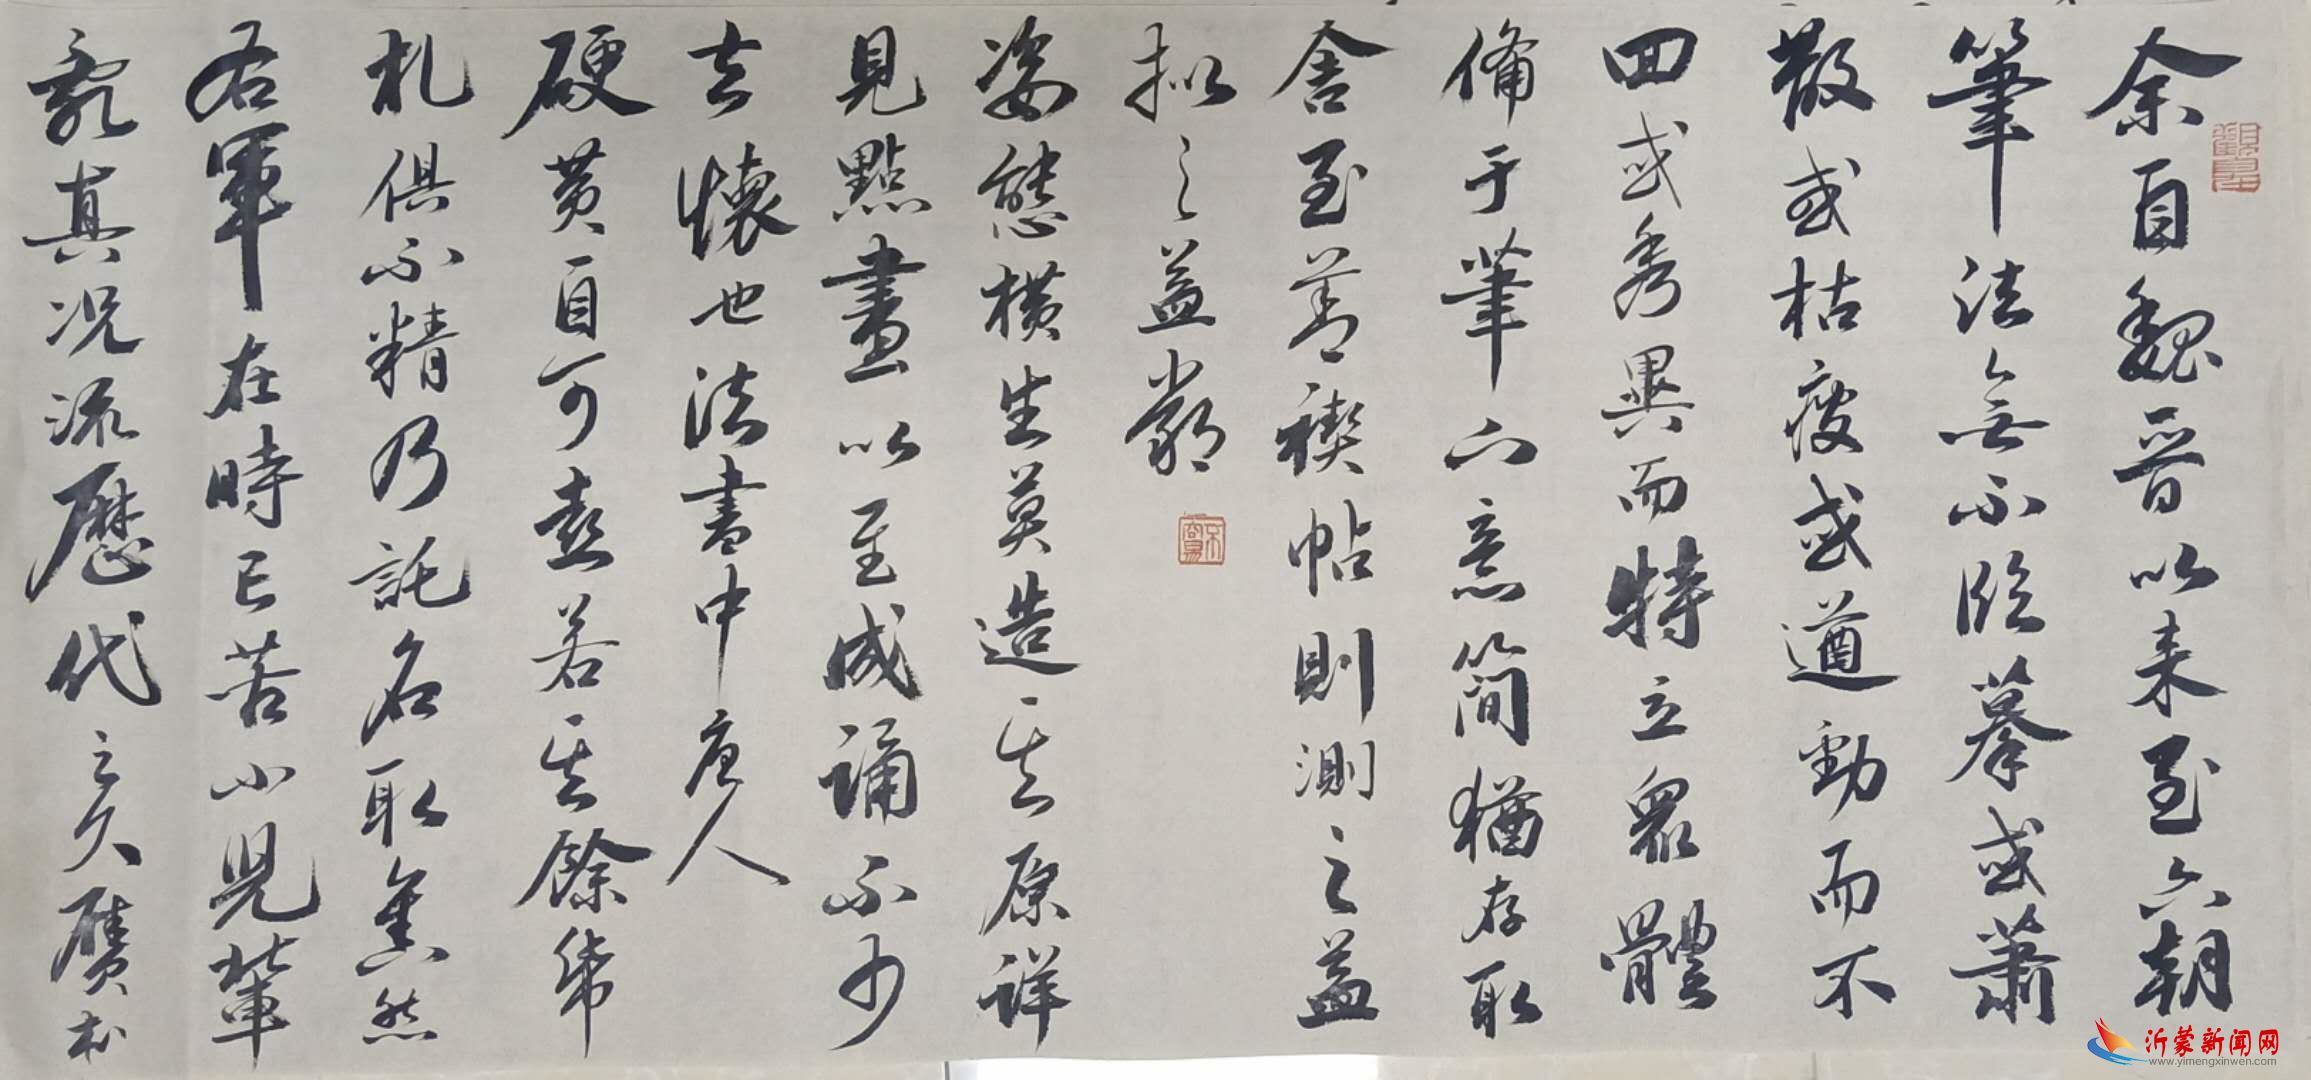 余自魏晋以来至六朝
筆法無不臨摹或蕭
散或枯瘦或遒勁而不
回或秀異而特立衆體
備于筆下意簡猶存取
舍至若禊帖則測之益
拟之益嚴
姿態橫生莫造其原詳
見點畫以至成誦不少
去懷也法書中唐人
硬黄自可喜若其餘帋
札俱不精乃託名取售然
右軍在時已苦小兒輩
亂真况流歷代之久贋本
沂蒙新闻网
www.yimengxinwen.com